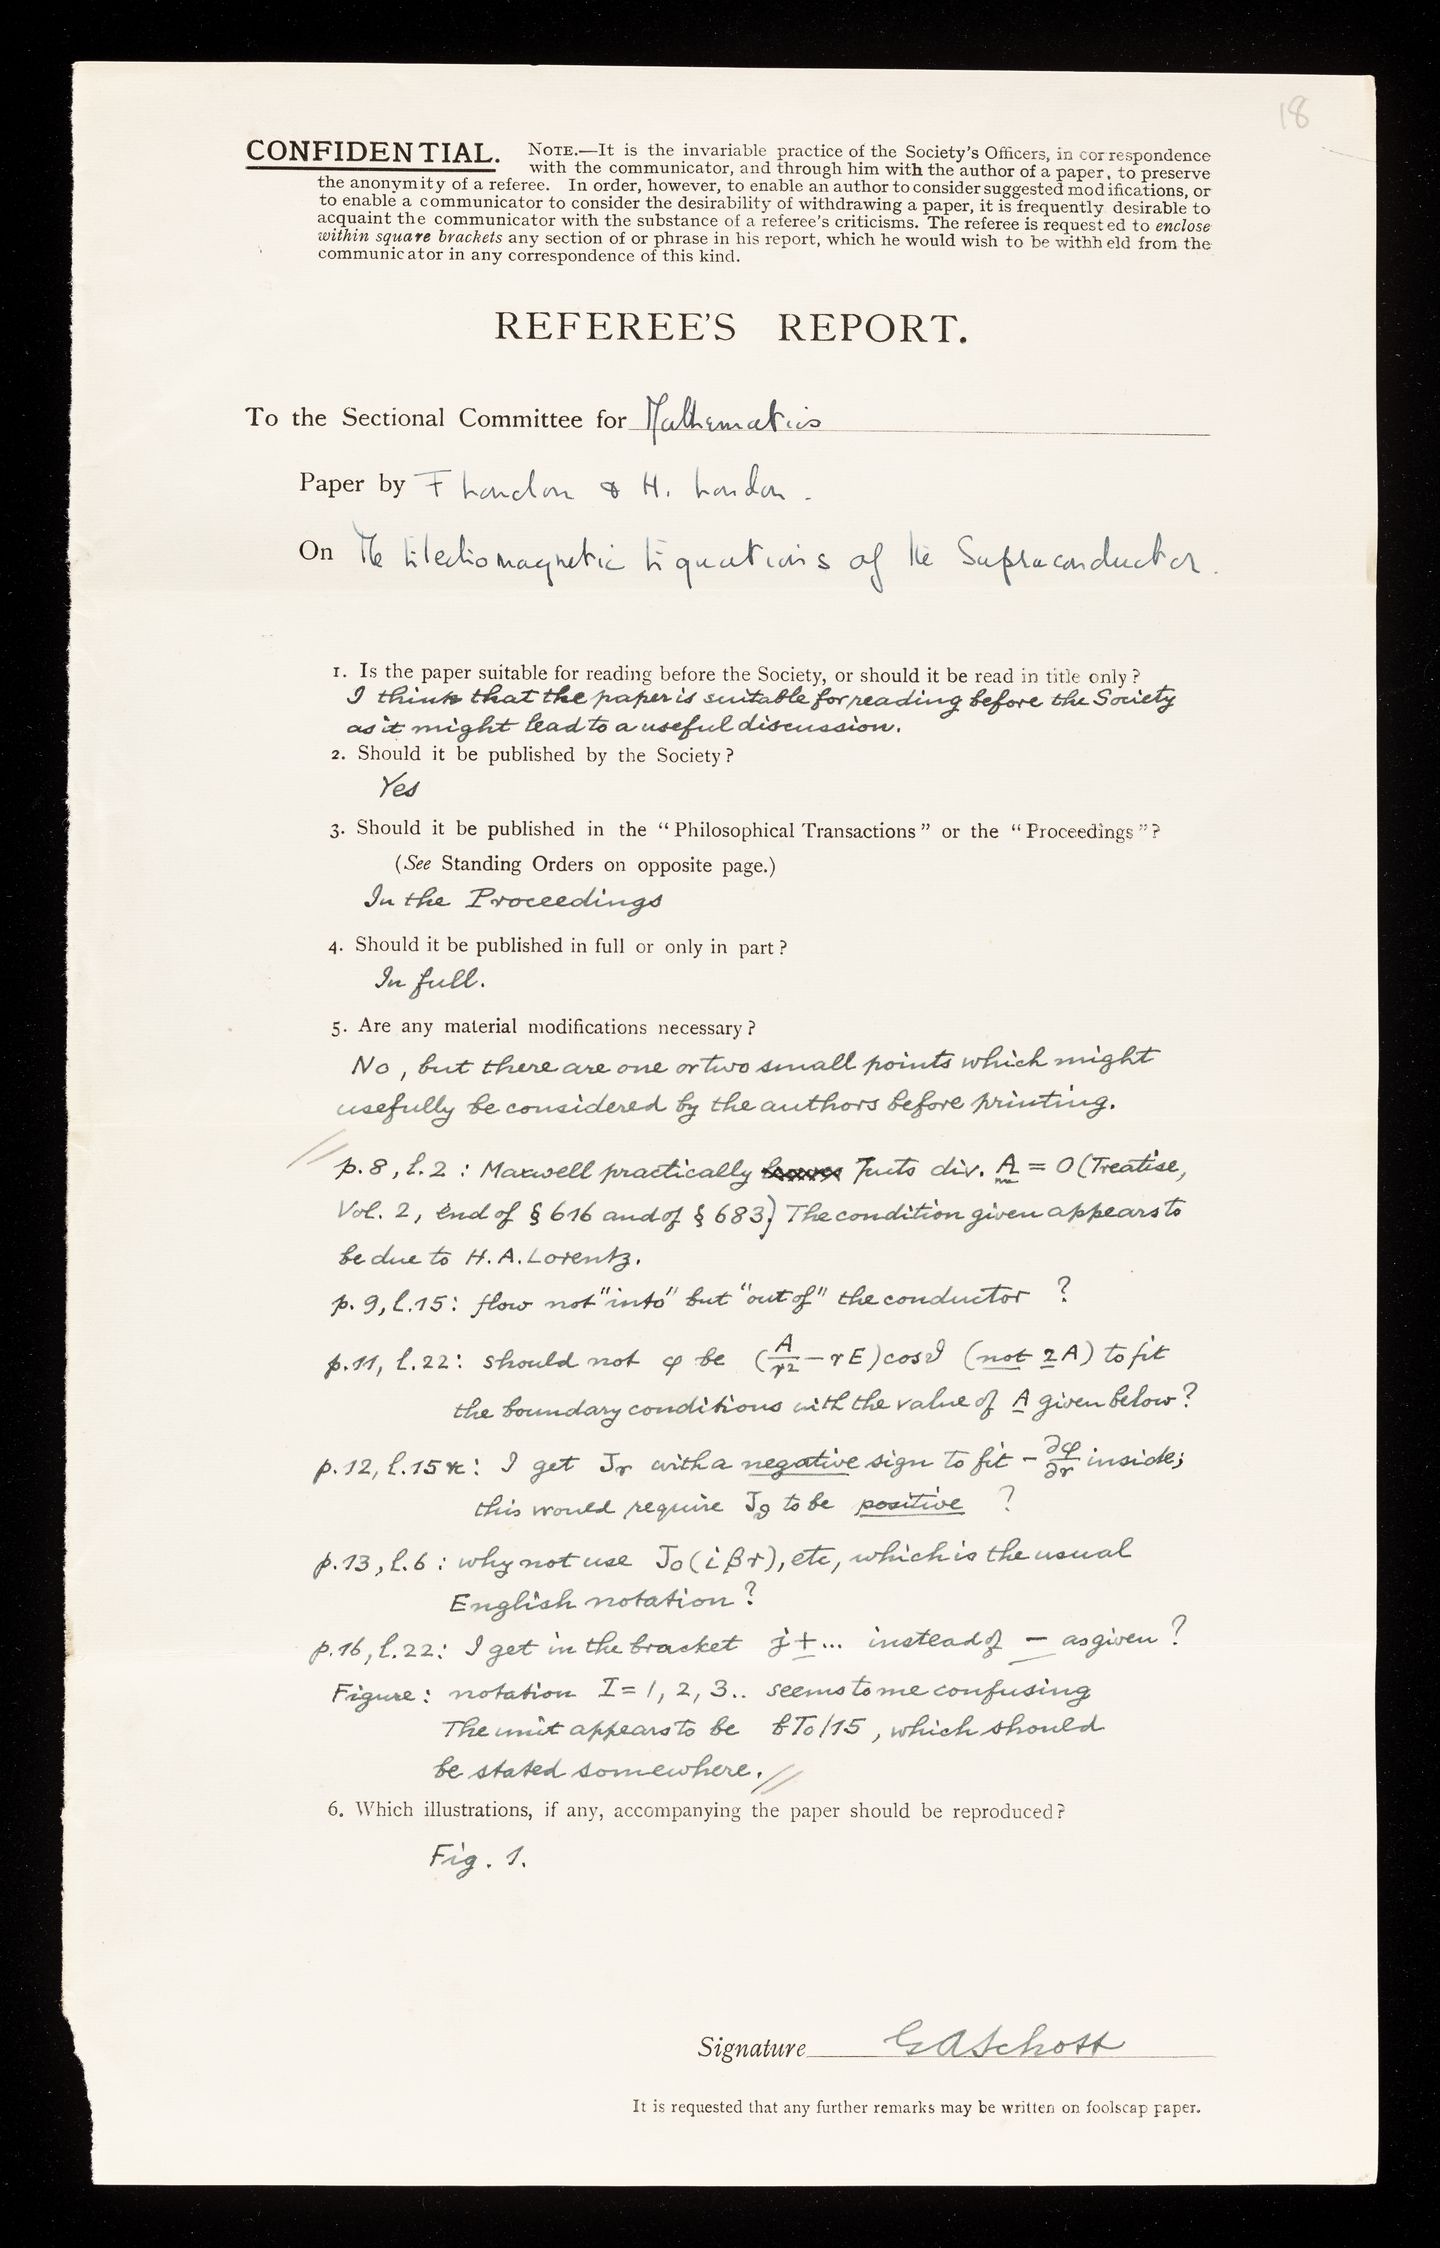 18
CONFIDENTIAL. NOTE.—It is the invariable practice of the Society's Officers, in correspondence
with the communicator, and through him with the author of a paper, to preserve
the anonymity of a referee. In order, however, to enable an author to consider suggested modifications, or
to enable a communicator to consider the desirability of withdrawing a paper, it is frequently desirable to
acquaint the communicator with the substance of a referee's criticisms. The referee is requested to enclose
within square brackets any section of or phrase in his report, which he would wish to be withheld from the
communicator in any correspondence of this kind.
REFEREE'S REPORT.
To the Sectional Committee for Mathematics
Paper by F London & H. London.
On The Electromagnetic Equations of the Supraconductor.
1. Is the paper suitable for reading before the Society, or should it be read in title only?
I think that the paper is suitable for reading before the Society
as it might lead to a useful discussion.
2. Should it be published by the Society?
Yes
3. Should it be published in the "Philosophical Transactions" or the "Proceedings"?
(See Standing Orders on opposite page.)
In the Proceedings
4. Should it be published in full or only in part?
In full.
5. Are any material modifications necessary?
No, but there are one or two small points which might
usefully be considered by the authors before printing.
p.8, l.2: Maxwell practically puts div. A = 0 (Treatise,
Vol. 2, end of § 616 and of § 683) The condition given appears to
be due to H. A. Lorentz.
p. 9, l.15: flow not "into" but "out of" the conductor ?
p.11, l.22: should not φ be (A/r² − rE) cos ϑ (not 2A) to fit
the boundary conditions with the value of A given below?
p.12, l.15: I get Jr with a negative sign to fit − ∂φ/∂r inside;
this would require Jϑ to be positive ?
p.13, l.6: why not use J0(iβr), etc, which is the usual
English notation?
p.16, l.22: I get in the bracket j + ... instead of − as given?
Figure: notation I = 1, 2, 3.. seems to me confusing
The unit appears to be bT0/15, which should
be stated somewhere.
6. Which illustrations, if any, accompanying the paper should be reproduced?
Fig. 1.
Signature GASchott
It is requested that any further remarks may be written on foolscap paper.